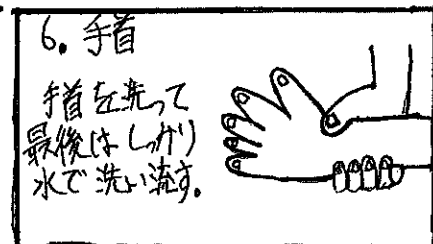 6. 手首
手首を洗って
最後はしっかり
水で洗い流す。